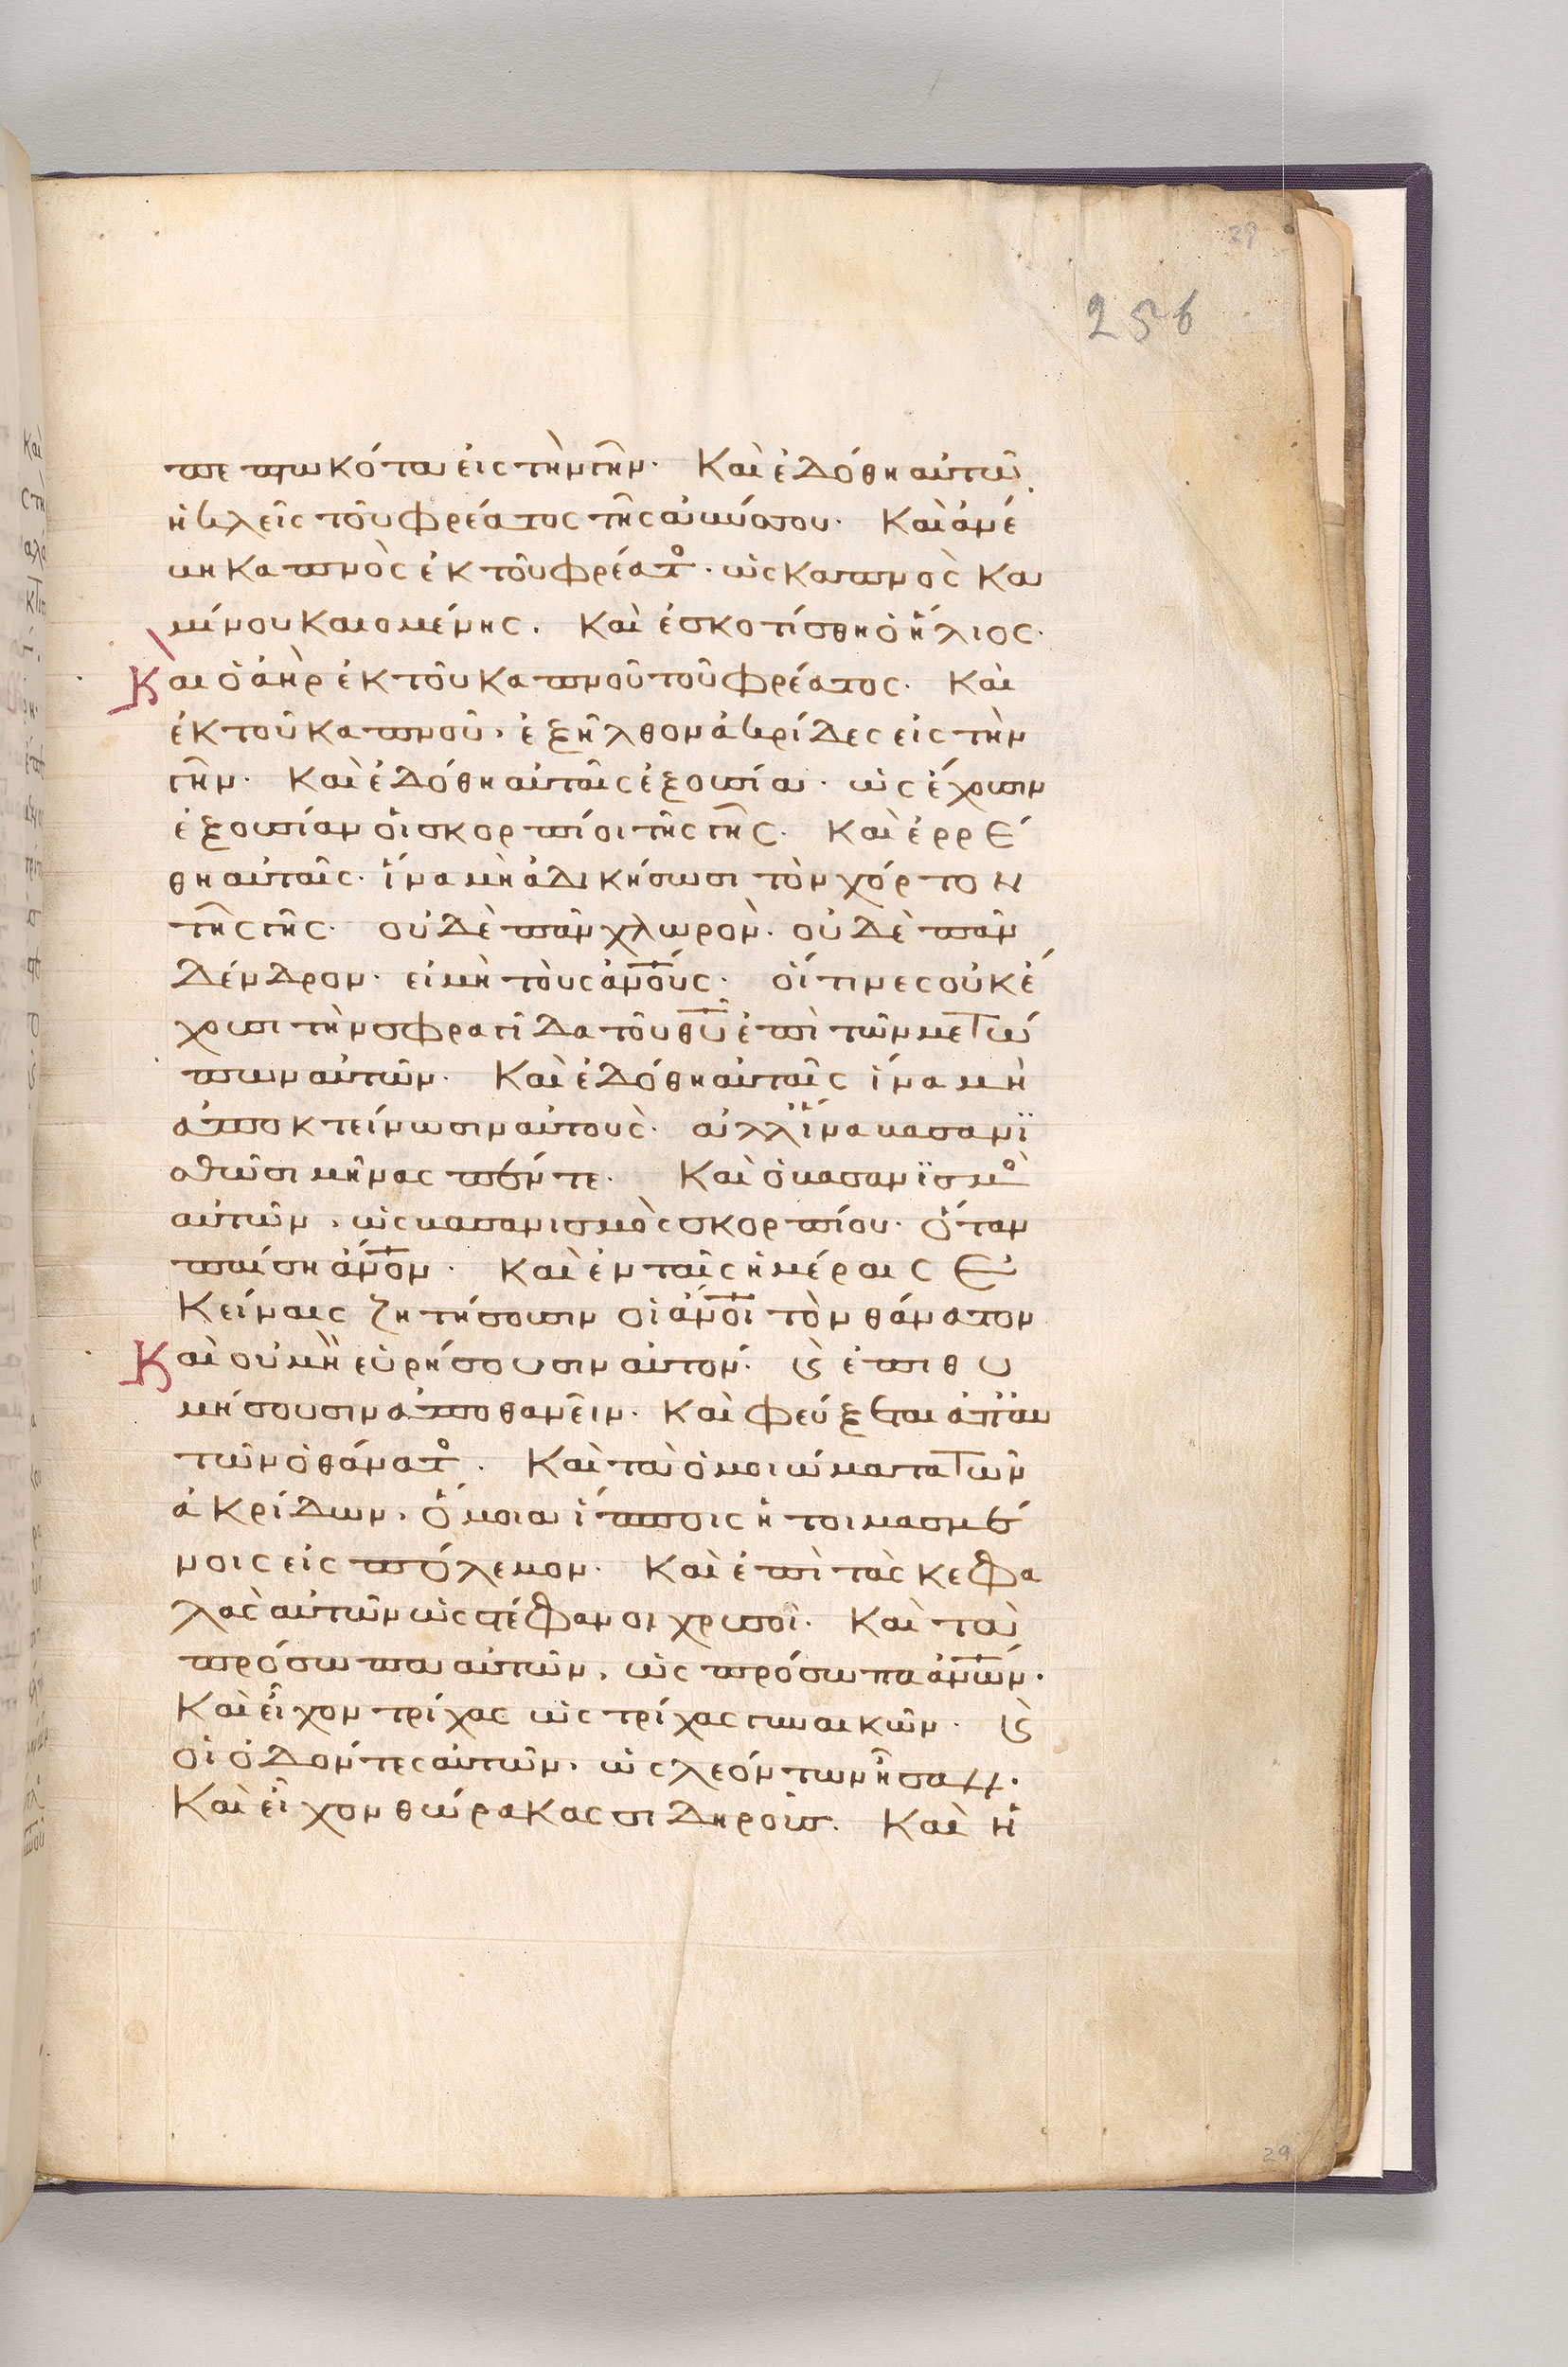 29
256
πεπτωκότα εἰς τὴν γῆν· Καὶ ἐδόθη αὐτῶ
ἡ κλεῖς τοῦ φρέατος τῆς ἀβύσσου· Καὶ ἀνέ
βη καπνὸς ἐκ τοῦ φρέατ̊· ὡς καπνὸς κα
μίνου καιομένης. Καὶ ἐσκοτίσθη ὁ ἥλιος·
Καὶ ὁ ἀὴρ ἐκ τοῦ καπνοῦ τοῦ φρέατος· Καὶ
ἐκ τοῦ καπνοῦ, ἐξῆλθον ἀκρίδες εἰς τὴν
γῆν· Καὶ ἐδόθη αὐταῖς ἐξουσία· ὡς ἔχουσιν
ἐξουσίαν οἱ σκορπίοι τῆς γῆς· Καὶ ἐρρέ
θη αὐταῖς· ἵνα μὴ ἀδικήσωσι τὸν χόρτον
τῆς γῆς· οὐδὲ πᾶν χλωρὸν· οὐδὲ πᾶν
δένδρον· εἰ μὴ τοὺς ἀν̅ο̅υ̅ς· οἵτινες οὐκ ἔ
χουσι τὴν σφραγῖδα τοῦ θ̅υ̅ ἐπὶ τῶν μετώ
πων αὐτῶν· Καὶ ἐδόθη αὐταῖς ἵνα μὴ
ἀποκτείνωσιν αὐτοὺς· ἀλλ' ἵνα βασανϊ
σθῶσι μῆνας πέντε· Καὶ ὁ βασανϊσμ̊
αὐτῶν, ὡς βασανισμὸς σκορπίου· ὅταν
παίση ἄν̅ο̅ν· Καὶ ἐν ταῖς ἡμέραις ἐ
κείναις ζητήσουσιν οἱ ἄν̅ο̅ι̅ τὸν θάνατον
Καὶ οὐ μὴ εὑρήσουσιν αὐτόν· ϗ ἐπιθυ
μήσουσιν ἀποθανεῖν· Καὶ φεύξεται ἀπ' αυ
τῶν ὁ θάνατ̊. Καὶ τὰ ὁμοιώματα τῶν
ἀκρίδων, ὅμοια ἵπποις ἡτοιμασμέ
νοις εἰς πόλεμον· Καὶ ἐπὶ τὰς κεφα
λὰς αὐτῶν ὡς στέφανοι χρυσοῖ· Καὶ τὰ
πρόσωπα αὐτῶν, ὡς πρόσωπα ἀν̅ω̅ν·
Καὶ εἶχον τρίχας ὡς τρίχας γυναικῶν· ϗ
οἱ ὀδόντες αὐτῶν, ὡς λεόντων ἦσαν·
Καὶ εἶχον θώρακας σιδηροῦς. Καὶ ἡ
29